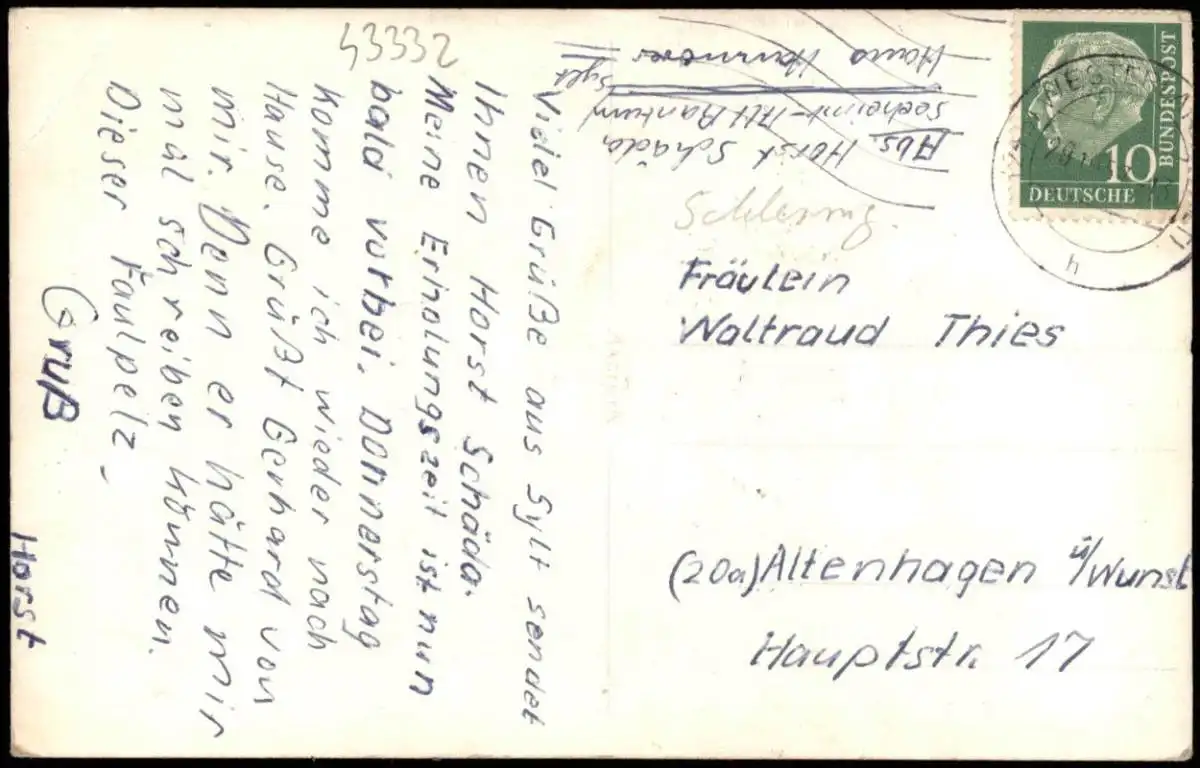 43332
Viele Grüße aus Sylt sendet
Ihnen Horst Schäda.
Meine Erholungszeit ist nun
bald vorbei. Donnerstag
komme ich wieder nach
Hause. Grüßt Gerhard von
mir. Denn er hätte mir
mal schreiben können.
Dieser Faulpelz.
Gruß
Horst
Abs. Horst Schäda
Sylt
Haus Hannover
Schleswig.
Fräulein
Waltraud Thies
(20a) Altenhagen ü/Wunst
Hauptstr. 17
10
DEUTSCHE
BUNDESPOST
h